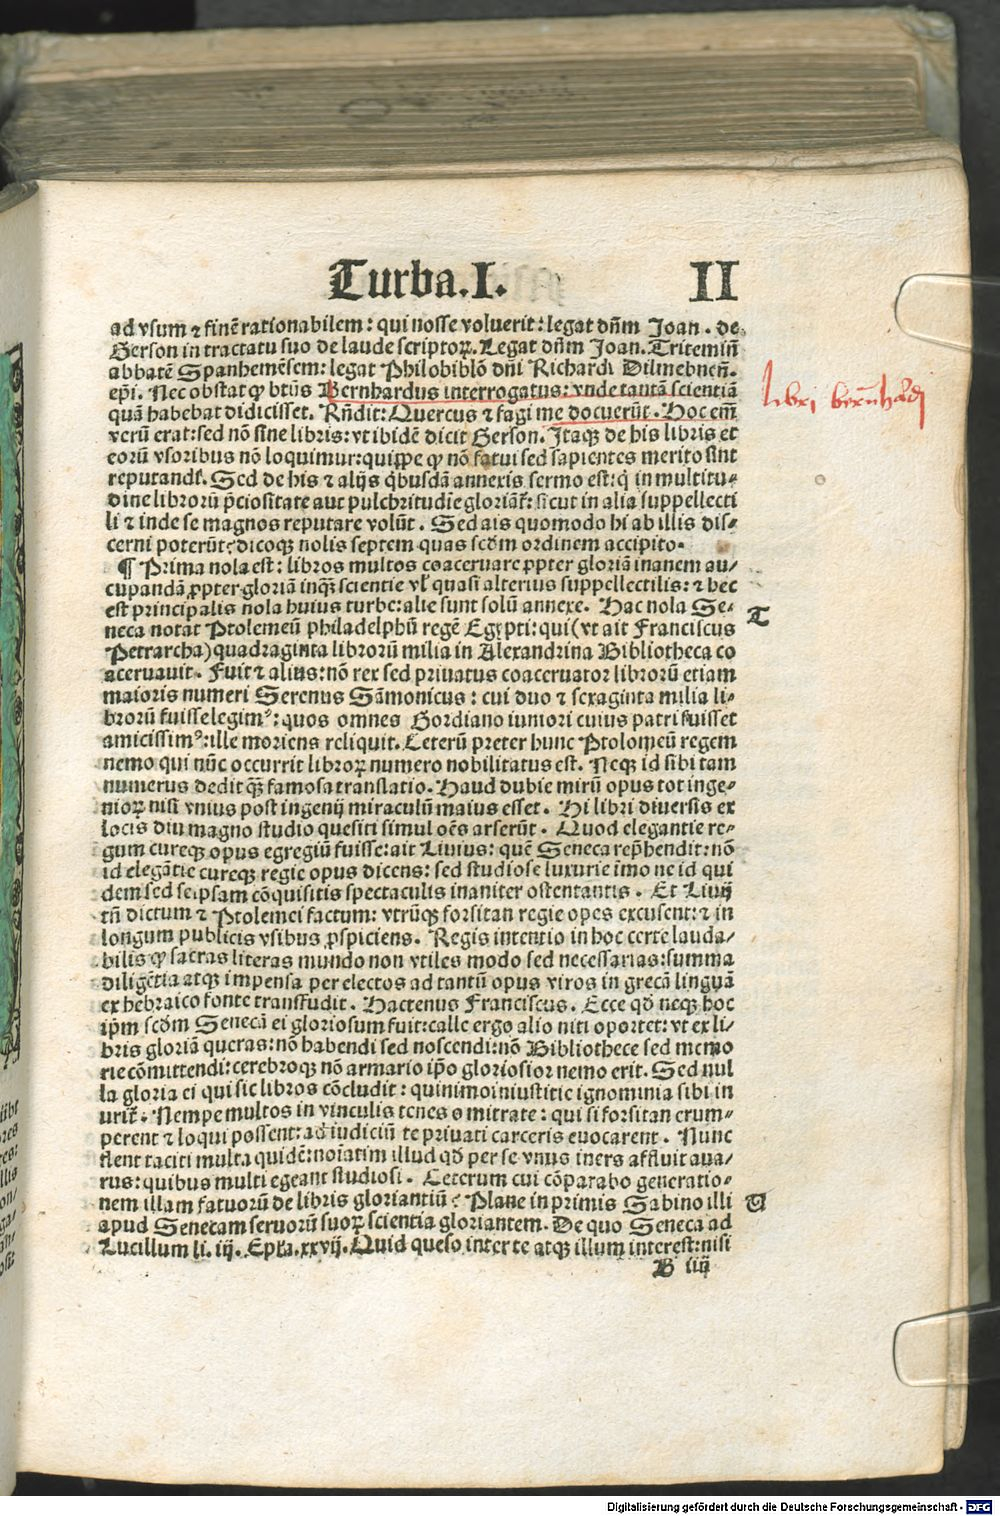 Turba.I. II
ad vsum ⁊ finē rationabilem: qui nosse voluerit: legat dn̄m Joan. de
Gerson in tractatu suo de laude scriptoꝝ. Legat dn̄m Joan. Tritemiū
abbatē Spanhemēsem: legat Philobiblō dn̄i Richardi Dilmebneñ.
ep̄i. Nec obstat ꝙ btūs Bernhardus interrogatus: vnde tantā scientiā
quā habebat didicisset. Rn̄dit: Quercus ⁊ fagi me docuerūt. Hoc em̄
verū erat: sed nō sine libris: vt ibidē dicit Gerson. Itaqꝫ de his libris et
eorū vsoribus nō loquimur: quippe ꝙ nō fatui sed sapientes merito sint
reputandi. Sed de his ⁊ alijs qͥbusdā annexis sermo est: qͥ in multitu-
dine librorū p̄ciositate aut pulchritudīe gloriāt̄: sicut in alia suppellecti
li ⁊ inde se magnos reputare volūt. Sed ais quomodo hi ab illis dis-
cerni poterūt: dicoqꝫ nolis septem quas scd̄m ordinem accipito.
¶ Prima nola est: libros multos coaceruare ꝓpter gloriā inanem au-
cupandā ꝓpter gloriā inqꝫ scientie vl̓ quasi alterius suppellectilis: ⁊ hec
est principalis nola huius turbe: alie sunt solū annexe. Hac nola Se- T
neca notat Ptolemeū philadelphū regē Egypti: qui (vt ait Franciscus
Petrarcha) quadraginta librorū milia in Alexandrina Bibliotheca co
aceruauit. Fuit ⁊ alius: nō rex sed priuatus coaceruator librorū etiam
maioris numeri Serenus Sāmonicus: cui duo ⁊ sexaginta milia li-
brorū fuisse legimꝰ: quos omnes Gordiano iuniori cuius patri fuisset
amicissimꝰ: ille moriens reliquit. Ceterū preter hunc Ptolomeū regem
nemo qui nūc occurrit libroꝝ numero nobilitatus est. Neqꝫ id sibi tam
numerus dedit qꝫ̄ famosa translatio. Haud dubie mirū opus tot inge-
nioꝝ nisi vnius post ingenij miraculū maius esset. Hi libri diuersis ex
locis diu magno studio quesiti simul oēs arserūt. Quod elegantie re-
gum cureqꝫ opus egregiū fuisse: ait Liuius: quē Seneca rep̄hendit: nō
id elegātie cureqꝫ regie opus dicens: sed studiose luxurie īmo ne id qui
dem sed seipsam cōquisitis spectaculis inaniter ostentantis. Et Liuij
tn̄ dictum ⁊ Ptolemei factum: vtrūqꝫ forsitan regie opes excusent: ⁊ in
longum publicis vsibus ꝓspiciens. Regis intentio in hoc certe lauda-
bilis ꝙ sacras literas mundo non vtiles modo sed necessarias: summa
diligētia atqꝫ impensa per electos ad tantū opus viros in grecā linguā
ex hebraico fonte transfudit. Hactenus Franciscus. Ecce qd̄ neqꝫ hoc
ip̄m scd̄m Senecā ei gloriosum fuit: calle ergo alio niti oportet: vt ex li-
bris gloriā queras: nō habendi sed noscendi: nō Bibliothece sed memo
rie cōmittendi: cerebroqꝫ nō armario ip̄o gloriosior nemo erit. Sed nul
la gloria ei qui sic libros cōcludit: quinimo iniustitie ignominia sibi in
urit̄. Nempe multos in vinculis tenes o mitrate: qui si forsitan erum-
perent ⁊ loqui possent: ad iudiciū te priuati carceris euocarent. Nunc
flent taciti multa quidē: noīatim illud qd̄ per se vnus iners affluit aua-
rus: quibus multi egeant studiosi. Ceterum cui cōparabo generatio-
nem illam fatuorū de libris gloriantiū? Plane in primis Sabino illi V
apud Senecam seruorū suoꝝ scientia gloriantem. De quo Seneca ad
Lucillum li. iij. Epl̄a. xxvij. Quid queso inter te atqꝫ illum interest: nisi
B iiij
libri bern̄hardi
Digitalisierung gefördert durch die Deutsche Forschungsgemeinschaft - DFG